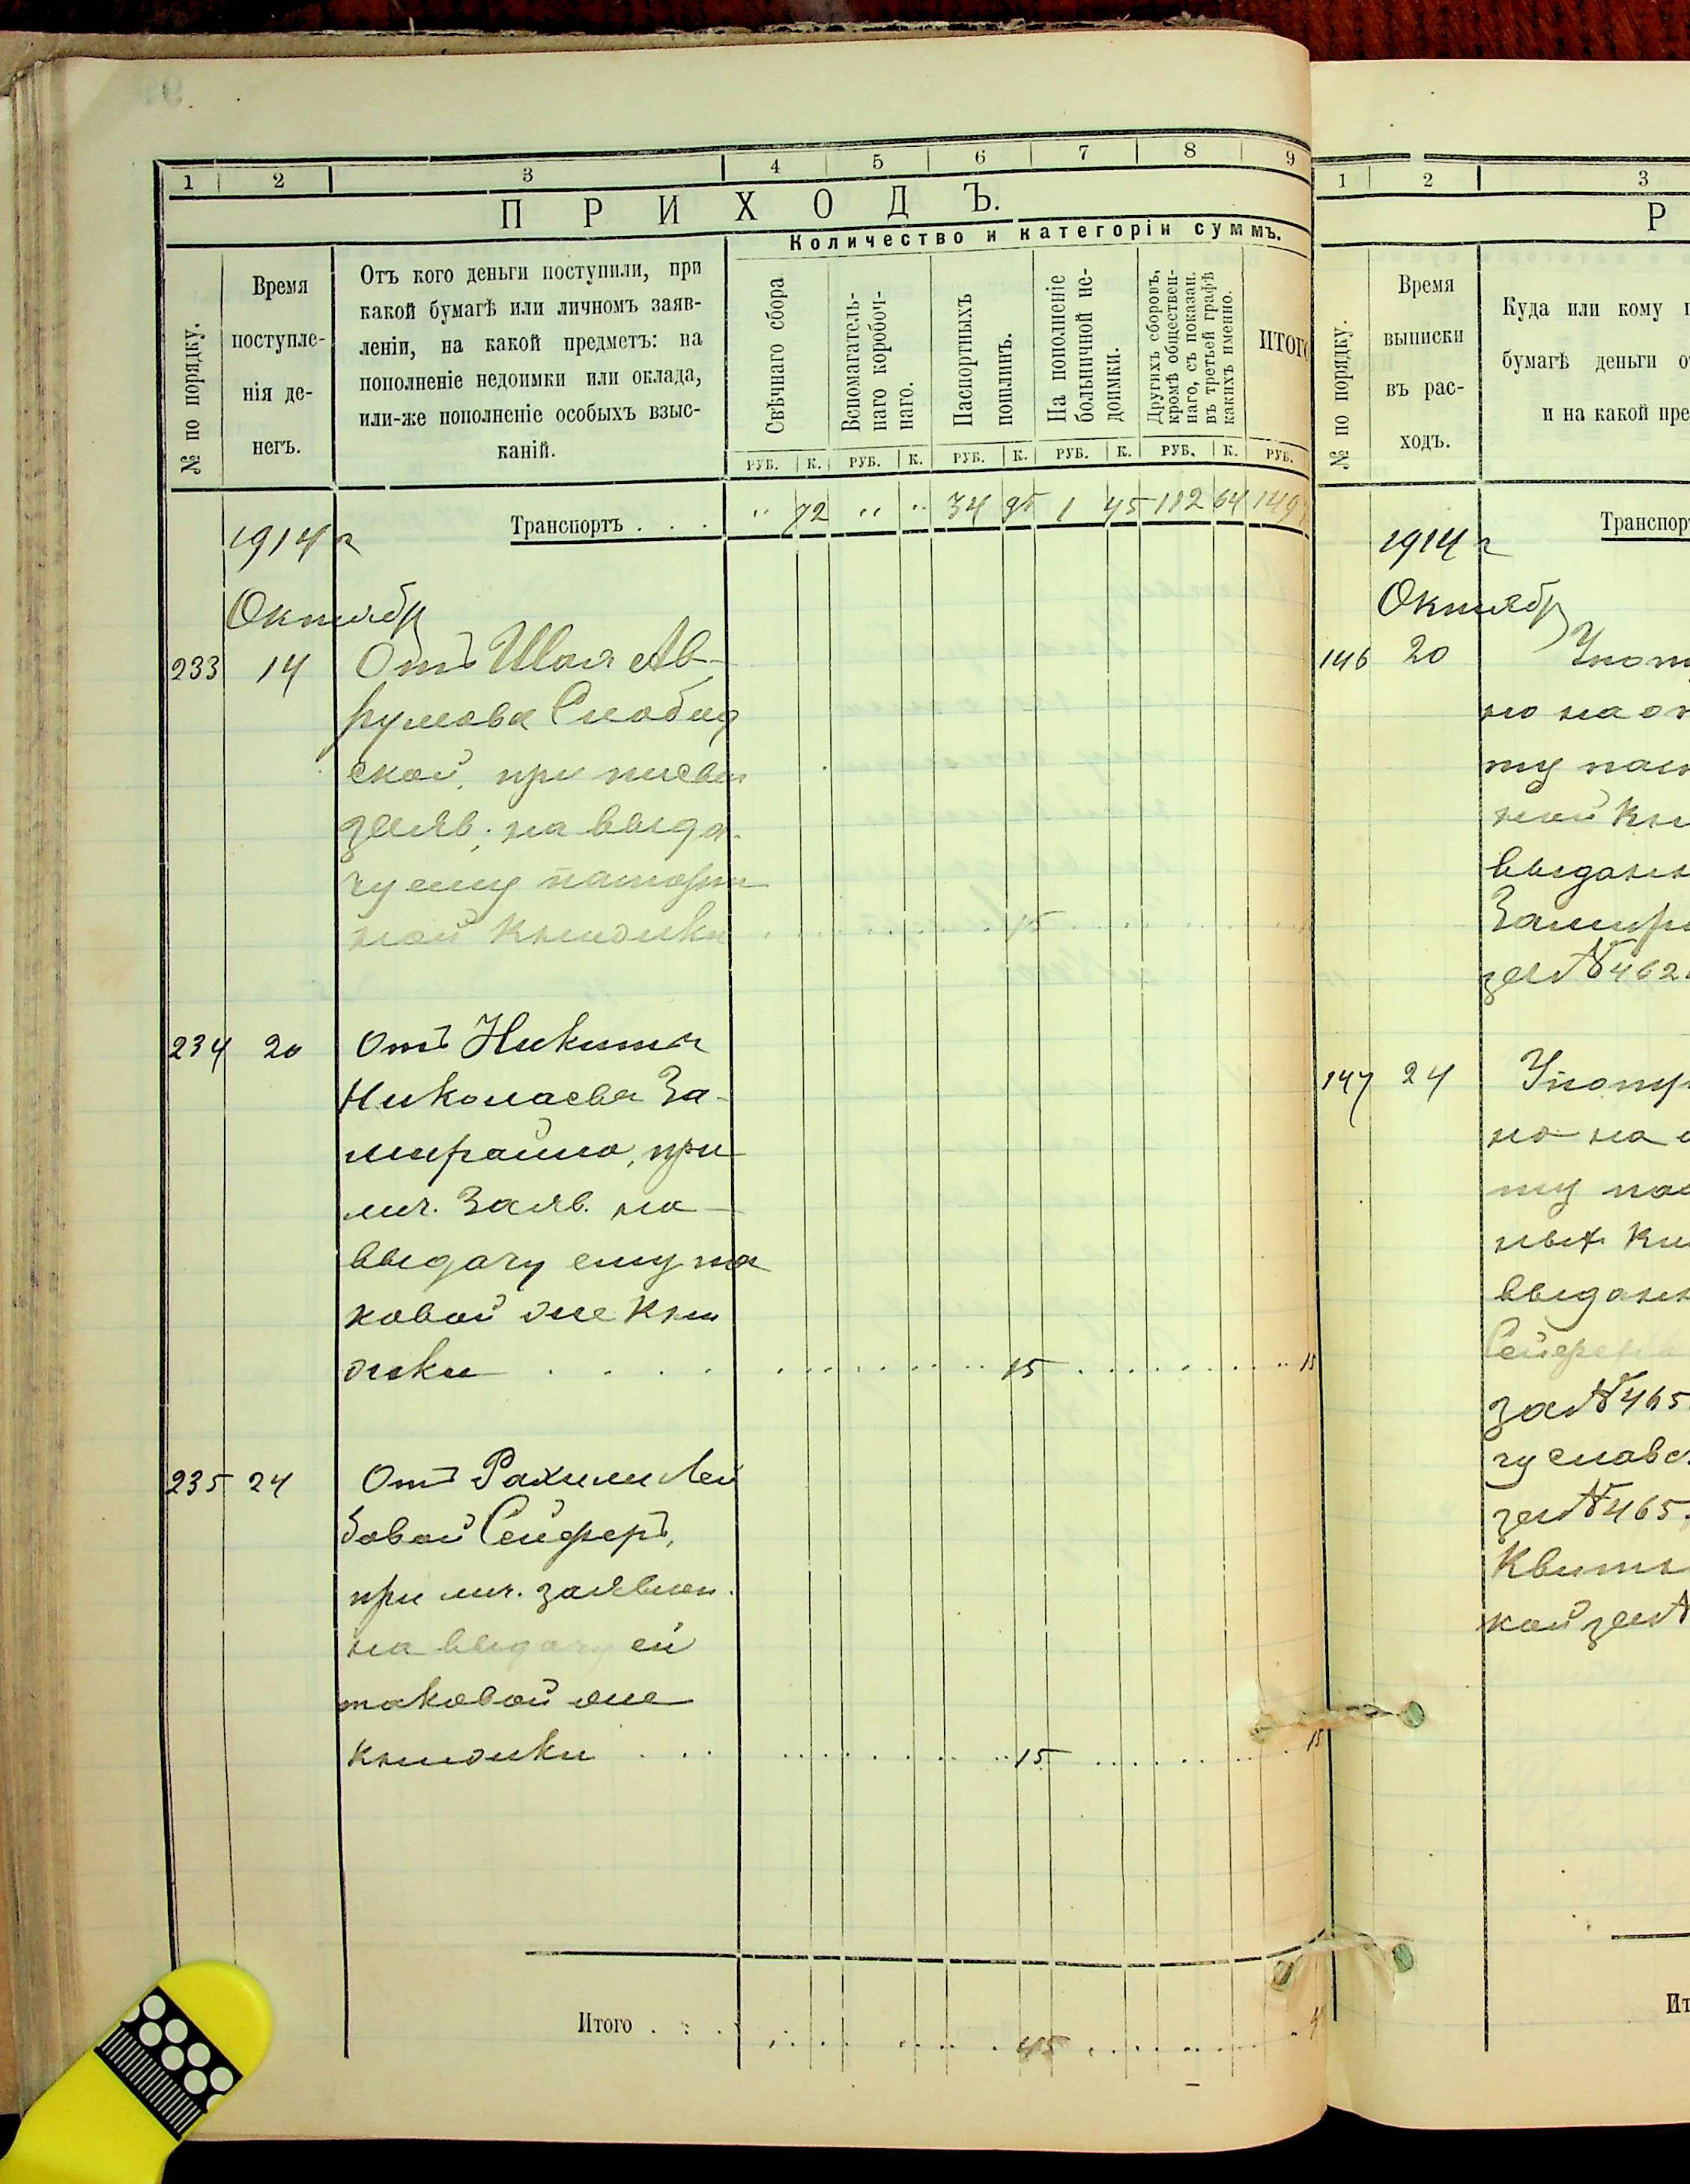 1 2 3 4 5 6 7 8 9
ПРИХОДЪ.
Количество и категоріи суммъ.
№ по порядку.
Время
поступле-
нія де-
негъ.
Отъ кого деньги поступили, при
какой бумагѣ или личномъ заяв-
леніи, на какой предметъ: на
пополненіе недоимки или оклада,
или-же пополненіе особыхъ взыс-
каній.
Свѣчнаго сбора
Вспомагатель-
наго коробоч-
наго.
Паспортныхъ
пошлинъ.
На пополненіе
больничной не-
доимки.
Другихъ сборовъ,
кромѣ обществен-
наго, съ показан.
въ третьей графѣ
какихъ именно.
ИТОГО
РУБ. К. РУБ. К. РУБ. К. РУБ. К. РУБ. К. РУБ.
Транспортъ . . . " 72 " " 34 95 1 45 112 64 149
1914 г
Октябр
233 14 Отъ Шая Ав-
румова Слобод
ской, при письм
заяв. на выда-
чу ему паспорт
ной книжки 15
234 20 Отъ Никиты
Николаева За-
мирайло, при
лич. Заяв. на
выдачу ему та
ковой же кни
жки . . . . 15 15
235 24 Отъ Рахили Лей
бовой Сейферъ,
при лич. заявлен.
на выдачу ей
таковой же
книжки . . . 15 15
Итого . . . 45
1 2 3
Р
№ по порядку.
Время
выписки
въ рас-
ходъ.
Куда или кому
бумагѣ деньги
и на какой пре
Транспор
1914 г
Октябр
146 20
но на о
ту пас
ной кни
выданн
Замир
за № 462
147 24
но на
ту пас
ных кни
выданн
Сейфер
за № 465
чуславс
за № 465
Квитк
кой за №
Ит